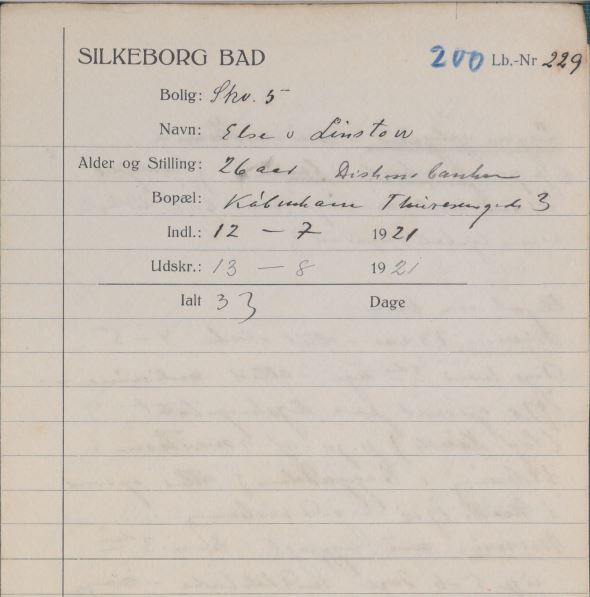 SILKEBORG BAD 200 Lb.-Nr 229
Bolig: Skv. 5
Navn: Else v Linstow
Alder og Stilling: 26 aar Diskontobanken
Bopæl: København Thuresensgade 3
Indl.: 12 - 7 1921
Udskr.: 13 - 8 1921
Ialt 33 Dage